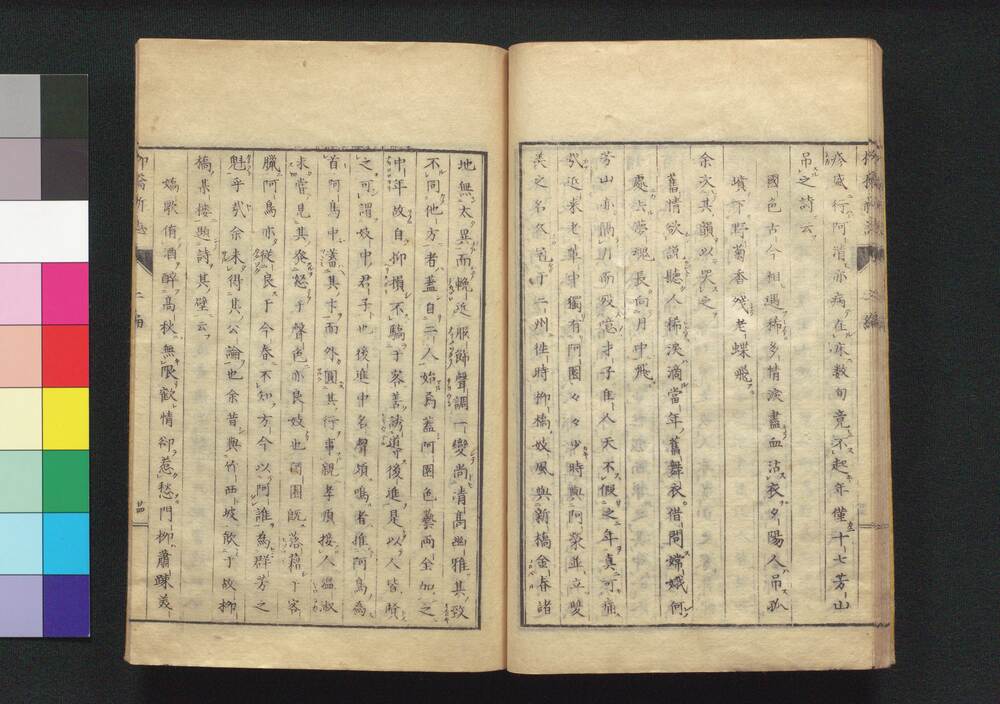 疼盛行阿清亦病在床数旬竟不起年僅十七芳山
弔之詩云
國色古今相遇稀多情淚盡血沾衣夕陽人弔孤
墳下野菊香殘老蝶飛
余次其韻以哭之
舊情欲說聽人稀淚滴當年舊舞衣借問嫦娥何
處去夢魂長向月中飛
芳山亦隔月而歿憶才子佳人天不假之年真可痛
哉近来老輩中獨有阿園々々少時與阿榮並立雙
美之名久宿于二州性時柳橋妓風與新橋金春諸
地無太異而輓近服飾聲調一變尚清高幽雅其致
不同他方者蓋自二人始焉蓋阿園色藝両全加之
中年故自抑損不驕于客善誘導後進是以人皆貶
之可謂妓中君子也後進中名聲頗鳴者推阿鳥為
首阿鳥中蓄其才而外圓其行事親孝順接人温淑
未嘗見其發怒乎聲色亦良妓也園既落藉于客
臘阿鳥亦從良于今春不知方今以阿誰為群芳之
魁乎哉余未得其公論也余昔與竹西坡飲于故柳
橋某楼題詩其壁云
嬌歌侑酒醉高秋無限歡情却惹愁門柳蕭疎美
柳橋新誌
二編